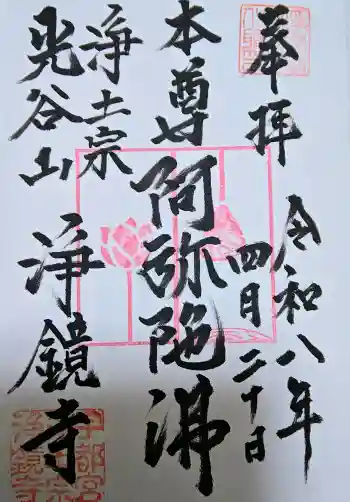 奉拝
令和八年
四月二十日
本尊阿弥陁沸
浄土宗
光谷山
浄鏡寺